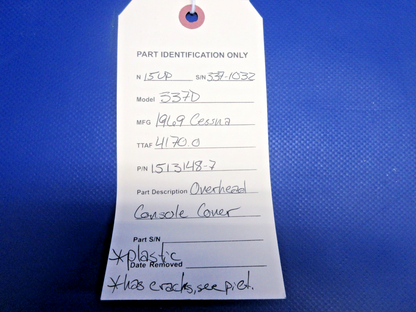 PART IDENTIFICATION ONLY
N 15UP S/N 337-1032
Model 337D
MFG 1969 Cessna
TTAF 4170.0
P/N 1513148-7
Part Description Overhead
Console Cover
Part S/N
*plastic
Date Removed
*has cracks, see pict.